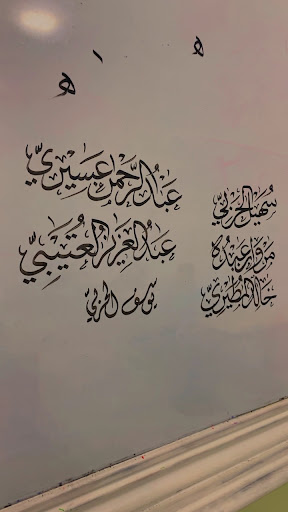 ه ١ ه
سهيل الحربي
مروان عبده
خالد المطيري
عبدالرحمن عسيري
عبدالعزيز العتيبي
يوسف الحربي